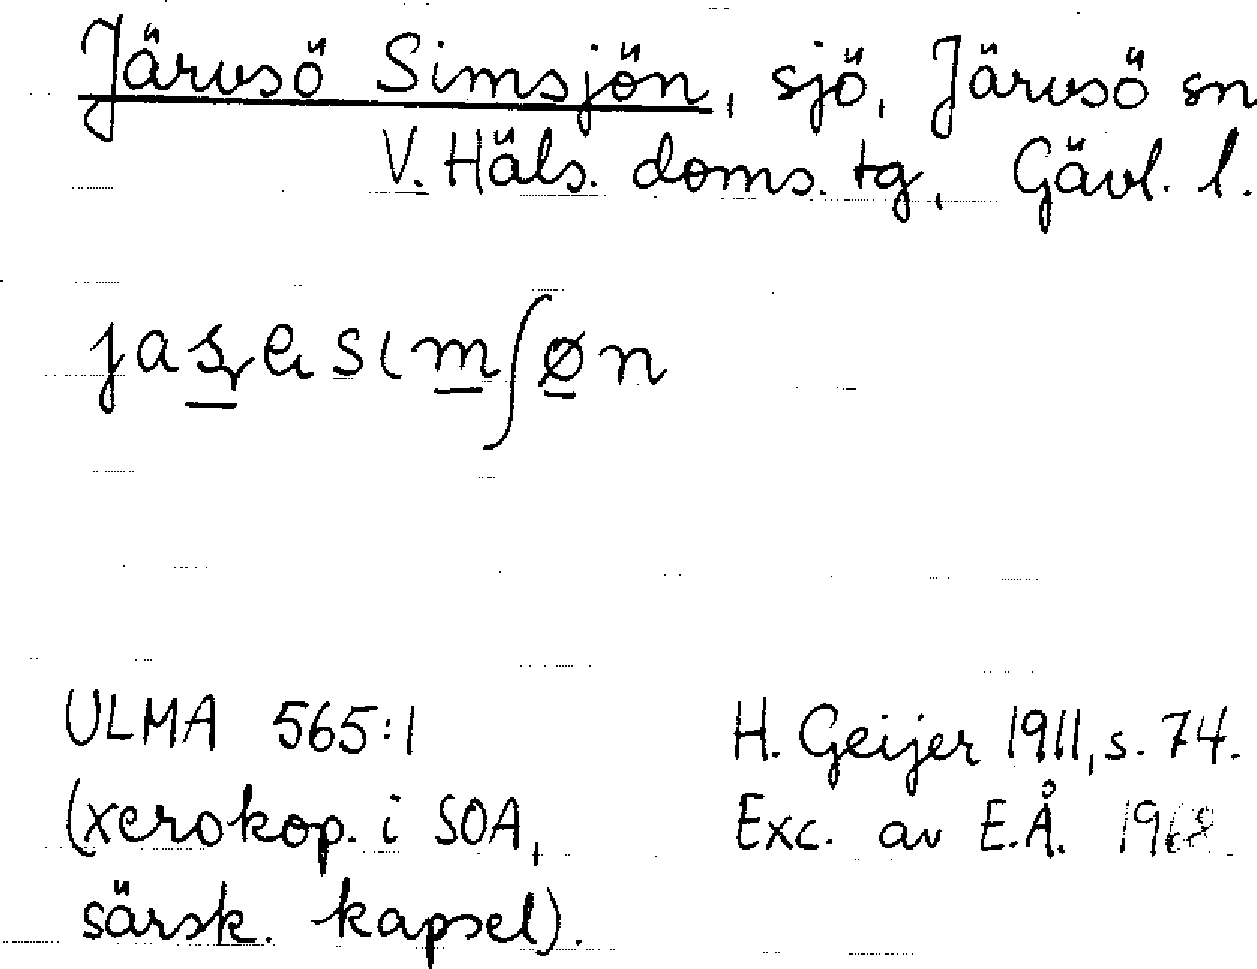 Järvsö Simsjön, sjö, Järvsö sn
V. Häls. doms. tg, Gävl. l.
ULMA 565:1
H. Geijer 1911, s. 74.
(xerokop. i SOA,
Exc. av E.Å. 1968
särsk. kapsel).